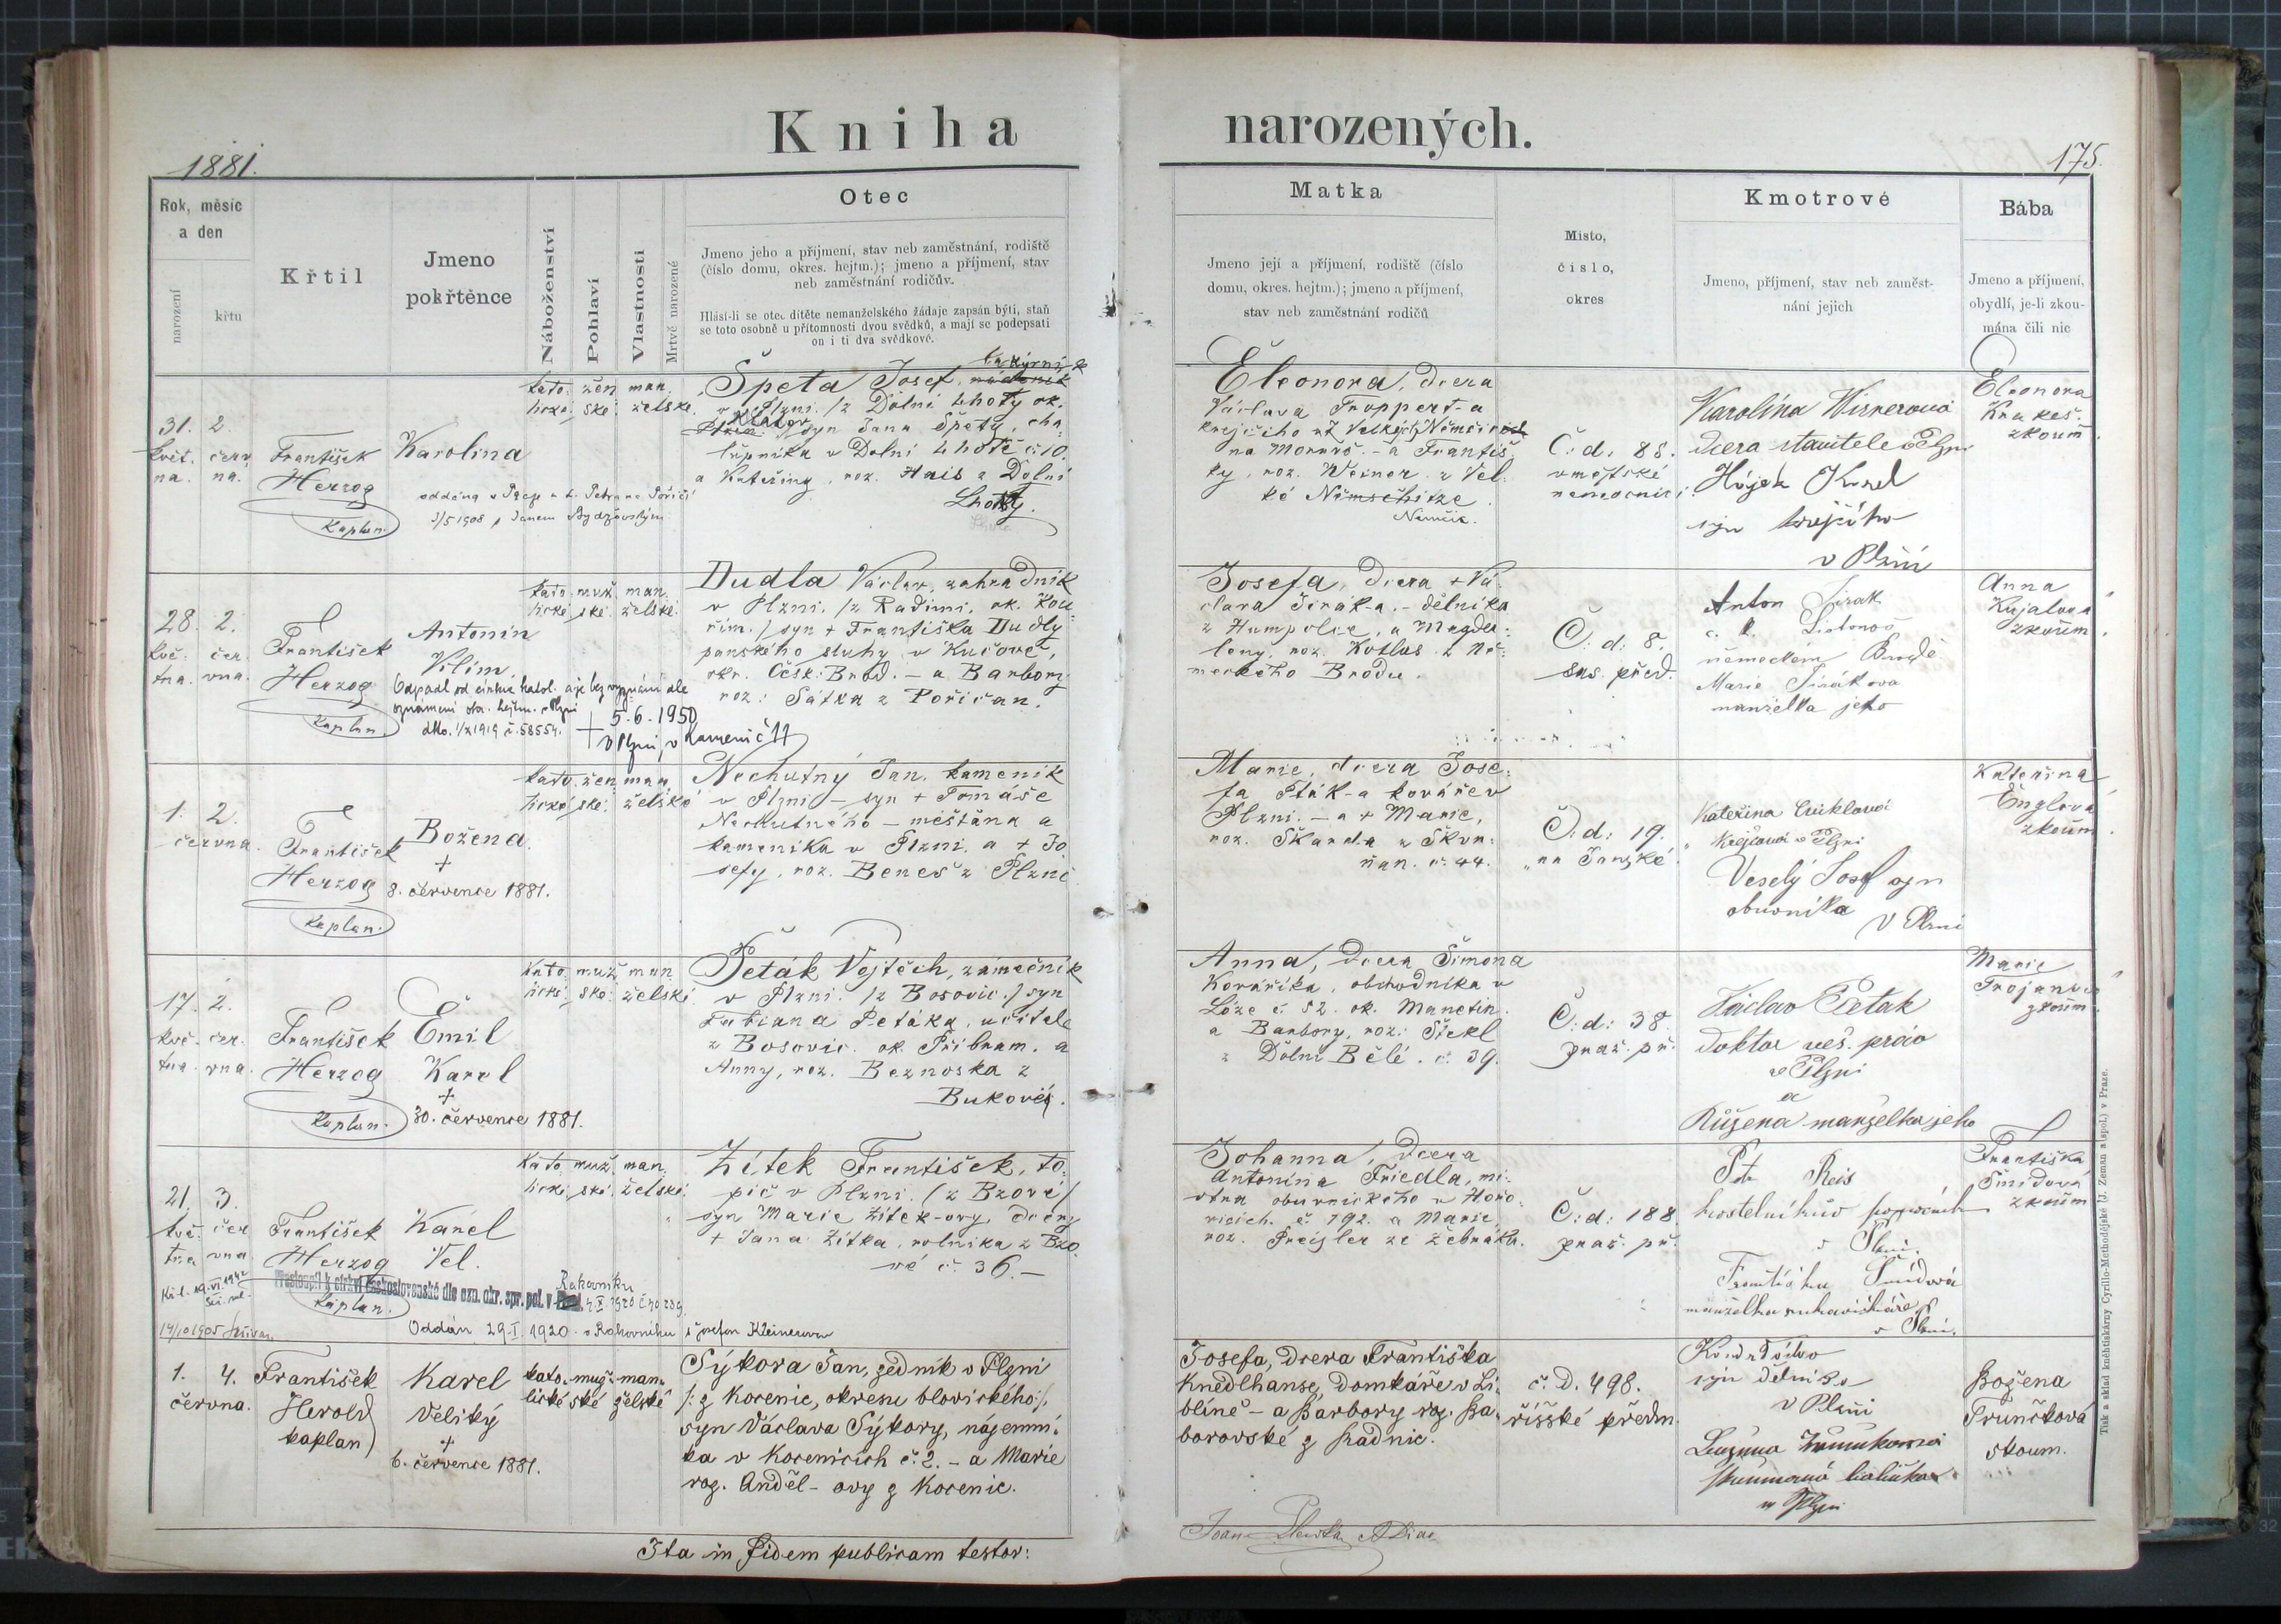 Kniha narozených.
1881.
175.
Rok, měsíc
a den
narození
křtu
Křtil
Jmeno
pokřtěnce
Náboženství
Pohlaví
Vlastnosti
Mrtvě narozené
Otec
Jmeno jeho a příjmení, stav neb zaměstnání, rodiště
(číslo domu, okres. hejtm.); jmeno a příjmení, stav
neb zaměstnání rodičův.
Hlásí-li se otec dítěte nemanželského žádaje zapsán býti, staň
se toto osobně u přítomnosti dvou svědků, a mají se podepsati
on i ti dva svědkové.
Matka
Jmeno její a příjmení, rodiště (číslo
domu, okres. hejtm.); jmeno a příjmení,
stav neb zaměstnání rodičů
Místo,
číslo,
okres
Kmotrové
Jmeno, příjmení, stav neb zaměst-
nání jejich
Bába
Jmeno a příjmení,
obydlí, je-li zkou-
mána čili nic
31. 2.
květ. červ
na. na.
František
Herzog
Kaplan.
Karolina
oddána v Praze u sv. Petra na Poříčí
3/5 1908 s Janem Bydžovským
kato. žen. man.
lické ské. želské.
Špeta Josef,
v Plzni. /z Dolní Lhoty ok.
Klatov syn Jana Špety, cha
lupníka v Dolní Lhotě č. 10.
a Kateřiny, roz. Hais z Dolní
Lhoty.
Eleonora, dcera
Václava Troppert-a
krejčího
na Moravě. - a Františ
ky, roz. Weiner z Vel
ké
Č: d: 88.
v městské
nemocnici.
Karolina Wisnerová
dcera stavitele v Plzni
Hájek Karel
syn krejčího
v Plzni
Eleonora
Krakeš.
zkoum.
28. 2.
kvě- čer.
tna. vna.
František
Herzog
Kaplan
Antonín
Vilím.
Odpadl od církve katol. a je bez vyznání dle
oznámení okr. hejtm. v Plzni
dto. 1/X 1919 č. 58554.
+ 5. 6. 1950
v Plzni, v Kamenič 17
kato. muž. man.
lické ské. želské.
Dudla Václav, zahradník
v Plzni. /z Radimi, ok. Kou
řim./ syn + Františka Dudly
panského sluhy v
okr. Česk: Brod. - a Barbory
roz: Šátka z Pořičan.
Josefa, dcera + Vá
clava Jirák-a. - dělníka
z Humpolce, a Magda-
leny, roz. Kotlas z Ně-
meckého Brodu.
Č: d: 8.
sas. před.
Anton Jirak
Listonoš
německém Brodě
Marie Jirákova
manželka jeho
Anna
zkoum.
1. 2.
června.
František
Herzog
Kaplan.
Božena.
+
8. července 1881.
kato. žen man
lické ské. želské
Nechutný Jan, kameník
v Plzni - syn + Tomáše
Nechutného - měštána a
kameníka v Plzni, a + Jo
sefy, roz. Beneš z Plzně
Marie, dcera Jose-
fa Pták-a kováře v
Plzni. - a + Marie,
roz. Škarda z Skvr-
ňan. č: 44.
Č: d: 19.
„na Janské.
Kateřina
Krejčová v Plzni
Veselý Josef syn
obuvníka
v Plzni
Kateřina
Englová
zkoum.
17. 2.
kvě- čer.
tna. vna.
František
Herzog
Kaplan.
Emil
Karel
+
30. července 1881.
Kato. muž man
lické ské. želské.
Peták Vojtěch, zámečník
v Plzni. /z Bosovic./ syn
Fabiana Petáka, učitele
z Bosovic. ok. Příbram. a
Anny, roz. Beznoska z
Anna, dcera Šimona
Kováříka, obchodníka v
Lóze č. 52. ok. Manetin.
a Barbory, roz: Štekl
z Dolní Bělé. č. 39.
Č: d: 38.
praž. př:
Václav Peták
doktor veš. práv
v Plzni
a
Růžena manželka jeho
Marie
Trojanová
zkoum.
21. 3.
kvě- čer
tna vna.
František
Herzog
Kaplan.
Karel
Vel.
Přistoupil k církvi československé dle ozn. okr. spr. pol. v
Rakovníku
Oddán 29.I. 1920 v Rakovníku s Josefou Kleinerovou
Kato. muž. man.
lické ské. želské.
Žítek František, to-
pič v Plzni. (z Bzové/
syn Marie Žítek-ovy, dcery
+ Jana Žítka, rolníka z Bzo
vé č: 36. -
Johanna, dcera
Antonína Friedla, mi-
stra obuvnického v Hořo-
vicích. č. 192. a Marie,
roz. Preisler ze Žebráka.
Č: d: 188.
praž. př:
Petr Reis
v Plzni.
Františka Šmídová
manželka rukavičkáře
v Plzni.
Františka
Šmídová
zkoum
1. 4.
června.
František
Herold
kaplan)
Karel
Veliký
+
6. července 1881.
kato- muž- man-
lické ské želské
Sýkora Jan, zedník v Plzni
/: z Kocenic, okresu blovického:/,
syn Václava Sýkory, nájemní-
ka v Kocenicích č: 2. - a Marie
roz. Anděl-ovy z Kocenic.
Josefa, dcera Františka
Knedlhanse, domkáře v Li-
blíně - a Barbory roz. Ba-
borovské z Radnic.
č. D. 498.
říšské předm.
syn dělníka
v Plzni
zkoumaná babička
v Plzni
Božena
Trunečková
zkoum.
Ita in fidem publicam testor:
Tisk a sklad knihtiskárny Cyrillo-Methodějské (J. Zeman a spol.) v Praze.